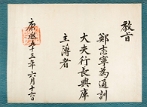 敎旨
鄭志寧為通訓
大夫行長興庫
主簿者
康熙五十三年六月十二日